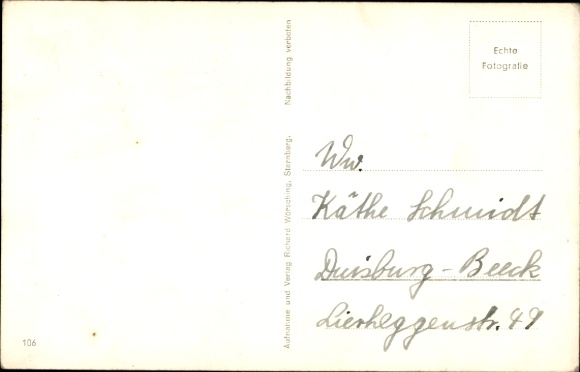 Echte
Fotografie
Aufnahme und Verlag Richard Wörsching, Starnberg. Nachbildung verboten
Ww.
Käthe Schmidt
Duisburg-Beeck
Lierheggenstr. 49
106